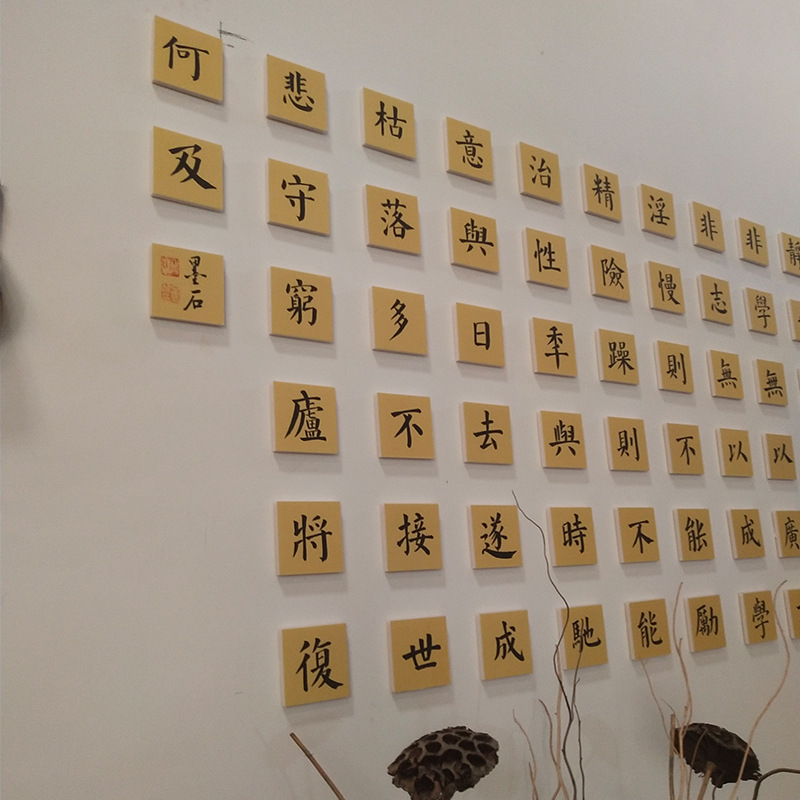 靜
非學無以廣
非志無以成學
淫慢則不能勵
精險躁則不能
治性秊與時馳
意與日去遂成
枯落多不接世
悲守窮廬將復
何及
墨石